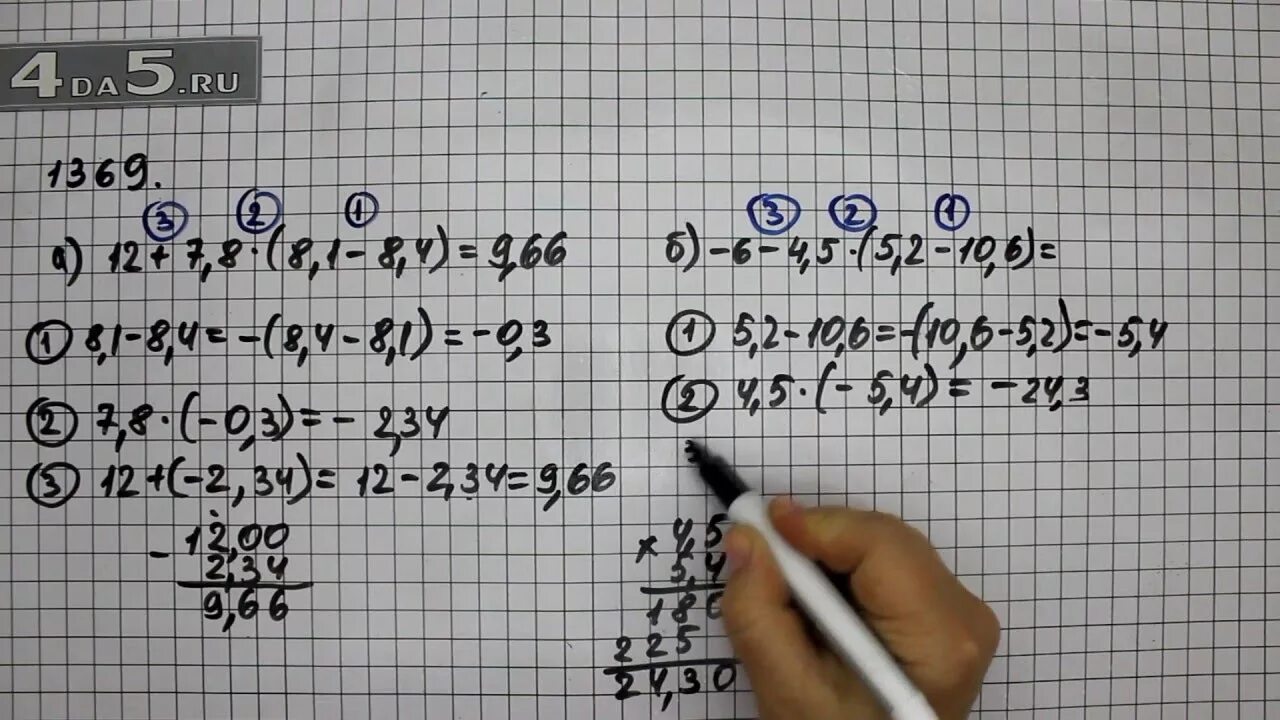 4DA5.RU
1369.
③ ② ①
а) 12 + 7,8 · (8,1 - 8,4) = 9,66
① 8,1 - 8,4 = -(8,4 - 8,1) = -0,3
② 7,8 · (-0,3) = - 2,34
③ 12 + (-2,34) = 12 - 2,34 = 9,66
- 12,00
2,34
9,66
③ ② ①
б) -6 - 4,5 · (5,2 - 10,6) =
① 5,2 - 10,6 = -(10,6 - 5,2) = -5,4
② 4,5 · (-5,4) = -24,3
3
× 4,5
5,4
180
225
24,30